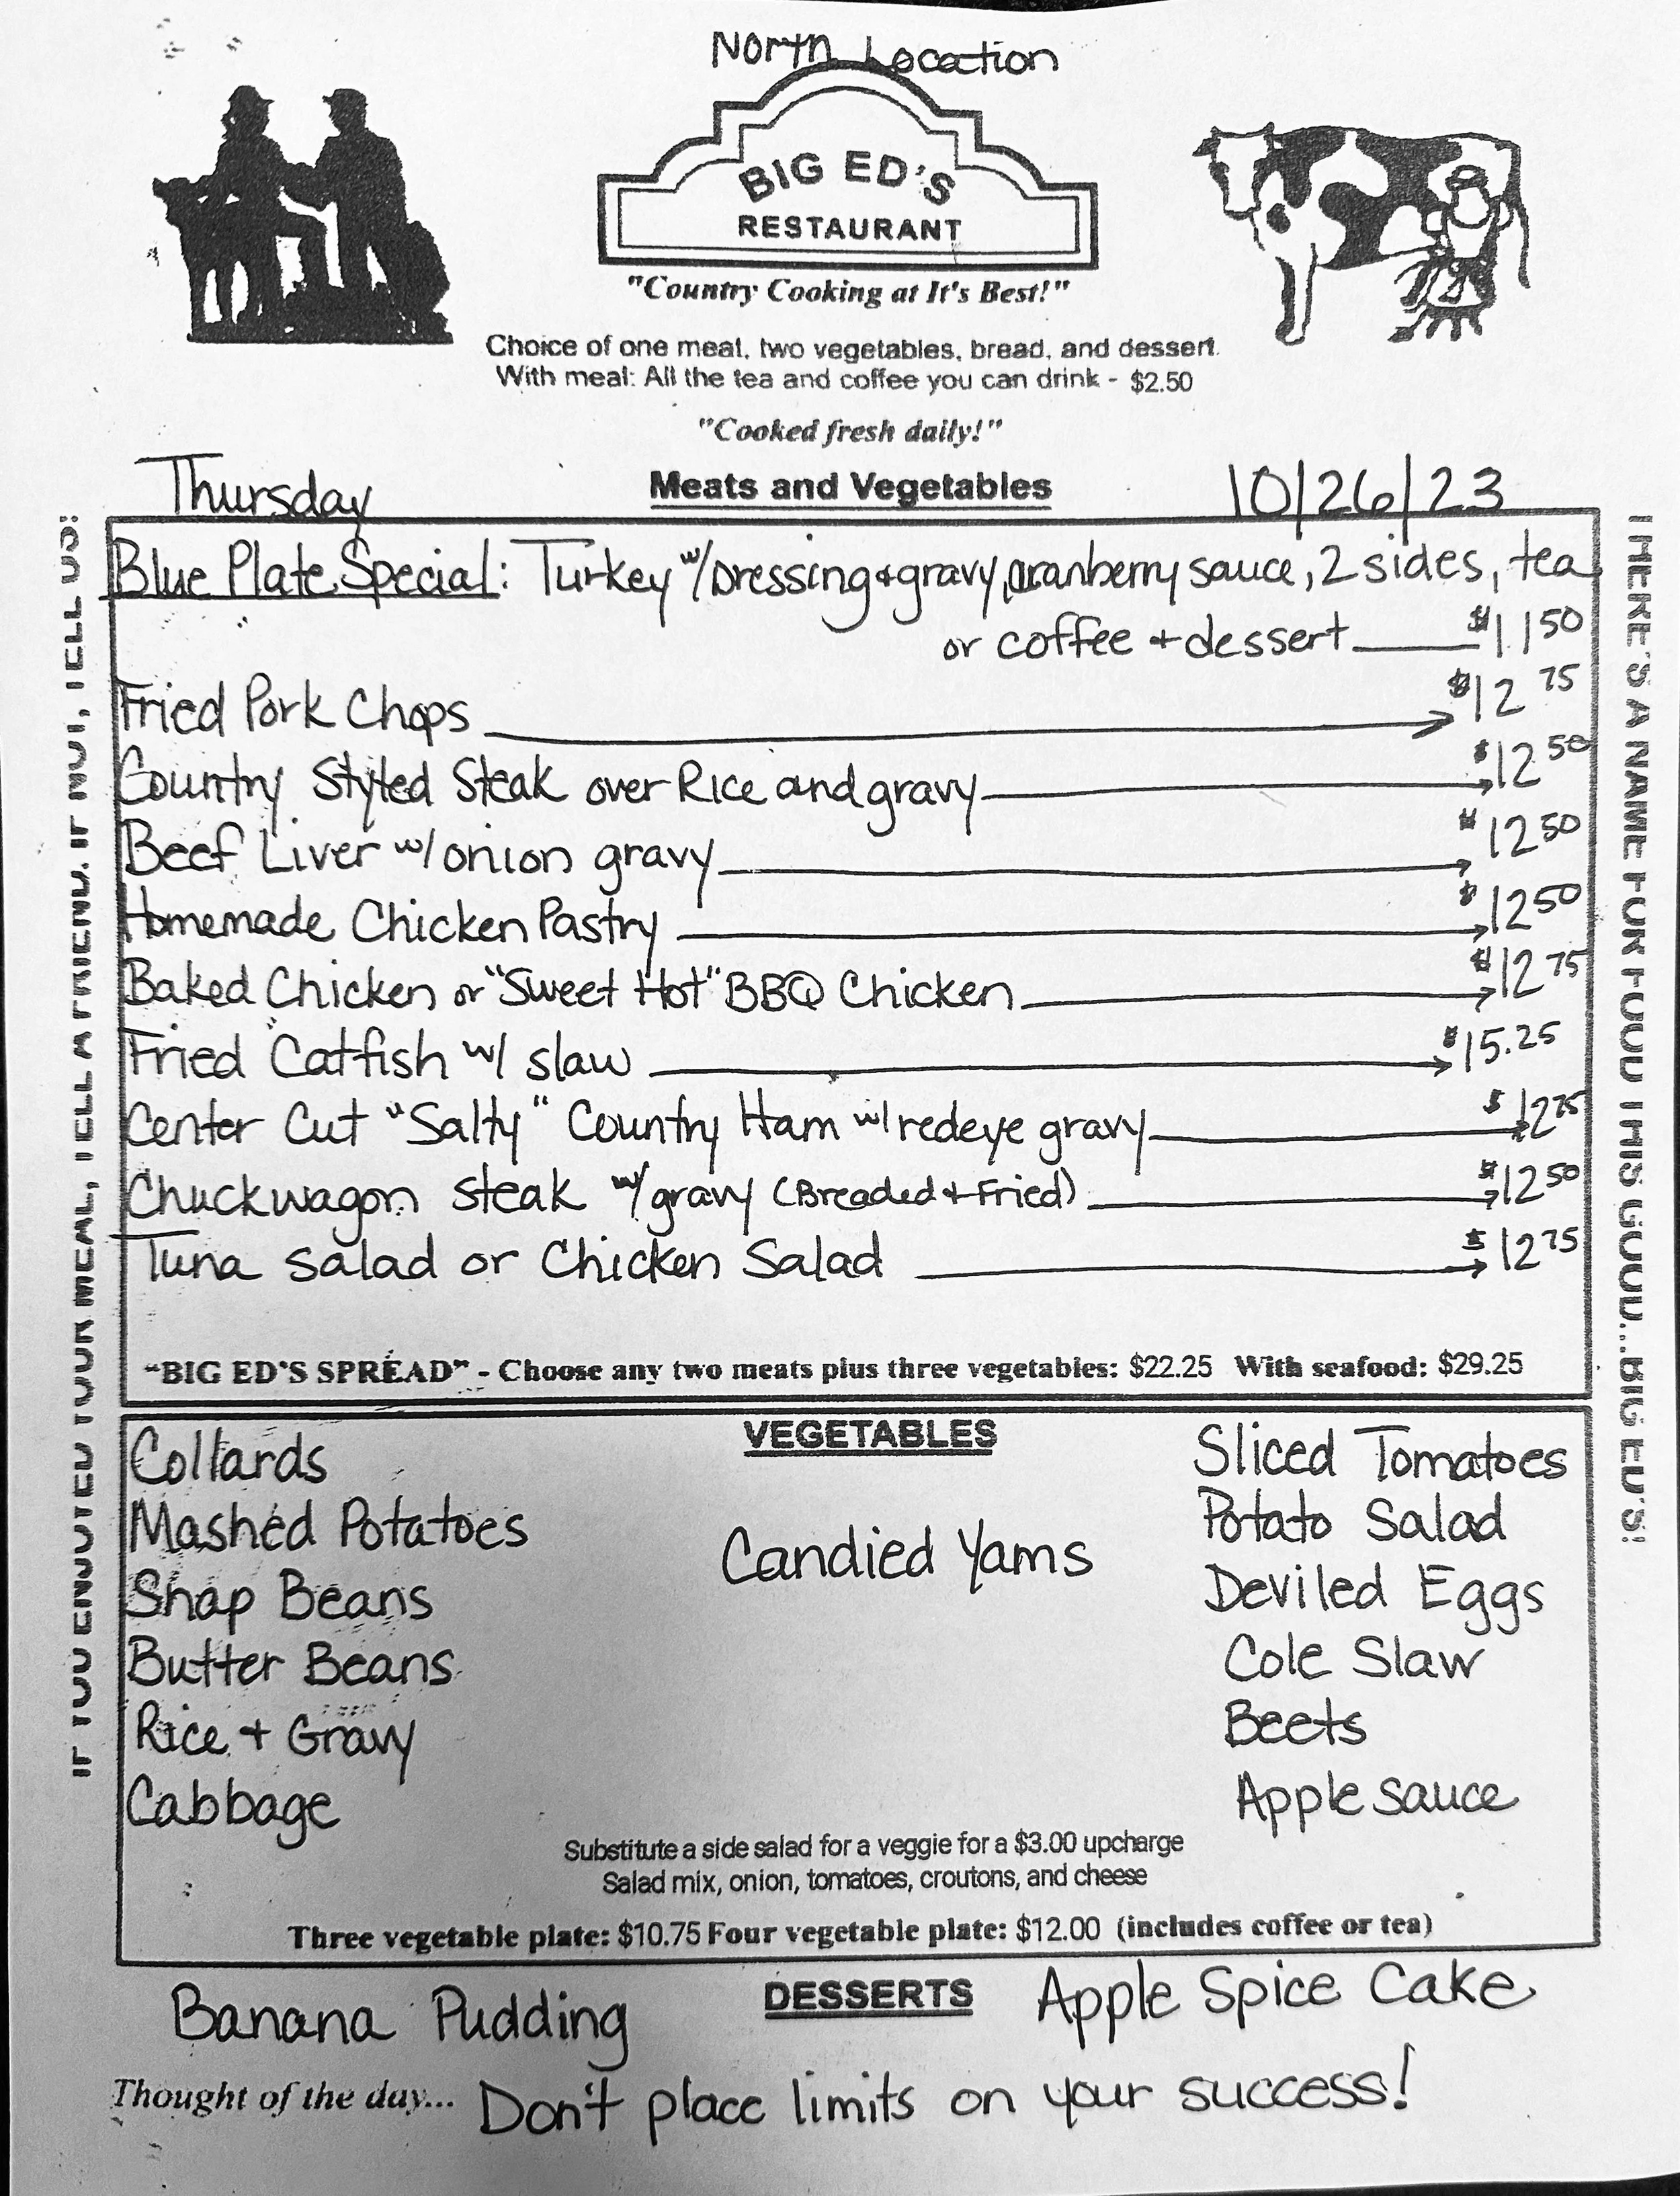 North Location
BIG ED'S
RESTAURANT
"Country Cooking at It's Best!"
Choice of one meat, two vegetables, bread, and dessert.
With meal: All the tea and coffee you can drink - $2.50
"Cooked fresh daily!"
Thursday
Meats and Vegetables
10/26/23
Blue Plate Special: Turkey w/ Dressing + gravy, cranberry sauce, 2 sides, tea
or coffee + dessert $11 50
Fried Pork Chops $12 75
Country Styled Steak over Rice and gravy $12 50
Beef Liver w/ onion gravy $12 50
Homemade Chicken Pastry $12 50
Baked Chicken or "Sweet Hot" BBQ Chicken $12 75
Fried Catfish w/ slaw $15.25
Center Cut "Salty" Country Ham w/ redeye gravy $12 75
Chuckwagon steak w/ gravy (Breaded + Fried) $12 50
Tuna Salad or Chicken Salad $12 75
"BIG ED'S SPREAD" - Choose any two meats plus three vegetables: $22.25 With seafood: $29.25
VEGETABLES
Collards
Mashed Potatoes
Snap Beans
Butter Beans
Rice + Gravy
Cabbage
Candied Yams
Sliced Tomatoes
Potato Salad
Deviled Eggs
Cole Slaw
Beets
Apple sauce
Substitute a side salad for a veggie for a $3.00 upcharge
Salad mix, onion, tomatoes, croutons, and cheese
Three vegetable plate: $10.75 Four vegetable plate: $12.00 (includes coffee or tea)
DESSERTS
Banana Pudding
Apple Spice Cake
Thought of the day... Don't place limits on your success!
IF YOU ENJOYED YOUR MEAL, TELL A FRIEND. IF NOT, TELL US!
THERE'S A NAME FOR FOOD THIS GOOD...BIG ED'S!